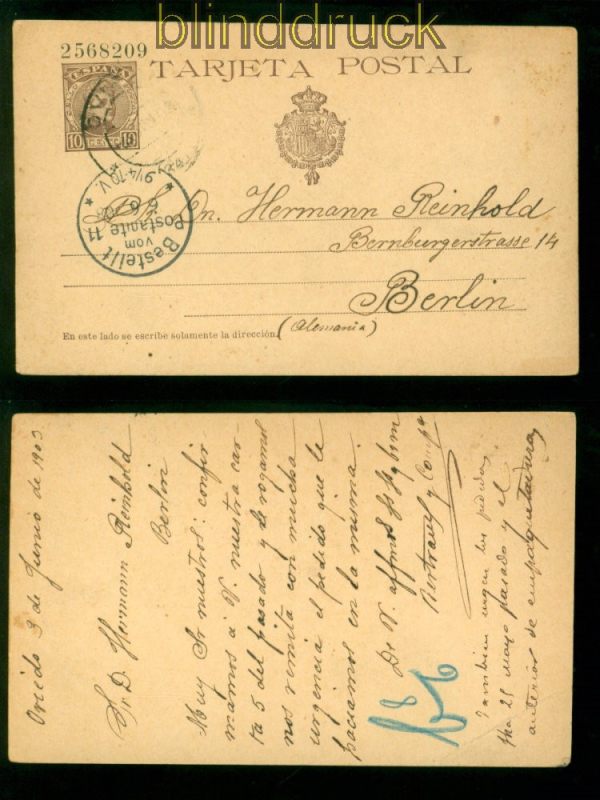 blinddruck
2568209
ESPAÑA
TARJETA POSTAL
10 CENT 10
Bestellt
vom
Postamte 11
6 6
9¼-10 V.
Hn. Hermann Reinhold
Bernburgerstrasse 14
Berlin
(Alemania)
En este lado se escribe solamente la dirección.
Oviedo 3 de Junio de 1903
Sr. D. Hermann Reinhold
Berlin
Muy Sr nuestros: confir
mamos á V. nuestra car-
ta 5 del pasado y le rogamos
nos remita con mucha
urgencia el pedido que le
haciamos en la misma.
De V. affmos
Bertrand y Compª
Tambien urgen los pedidos
fha 25 Mayo pasado y el
anterior de empaquetadura